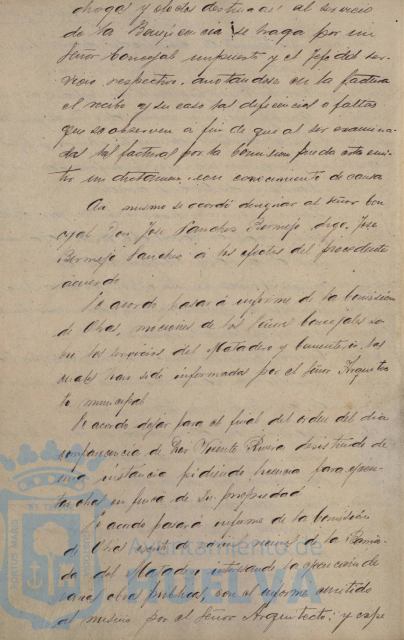 drogas y otros destinados al servicio
de la Beneficencia, se haga por un
Señor Concejal impuesto y el Jefe del ser-
vicio respectivo, anotandose en la factura
el recibo y su caso las deficiencias o faltas
que se observen a fin de que al ser examina-
das las facturas por la Comision pueda esta emi-
tir un dictamen con conocimiento de causa
Asi mismo se acordó designar al señor Con-
cejal Don José Sanchez Bermejo, digo, José
Bermejo Sanchez a los efectos del precedente
acuerdo
Se acordo pasar á informe de la Comision
de Obras, mociones de los Señores Concejales so-
bre los servicios del Matadero y Cementerio, las
cuales han sido informadas por el Señor Arquitec-
to municipal
Se acordo dejar para el final del orden del dia
comparecencia de Don Vicente Rivera desistiendo de
una instancia pidiendo licencia para ejecu-
tar obras en finca de su propiedad
Se acordo pasar á informe de la Comisión
de Obras de la
del Matadero interesando la ejecucion de
varias obras publicas, con el informe emitido
al mismo por el Señor Arquitecto; y
Ayuntamiento de
HUELVA
PORTUS MARIS